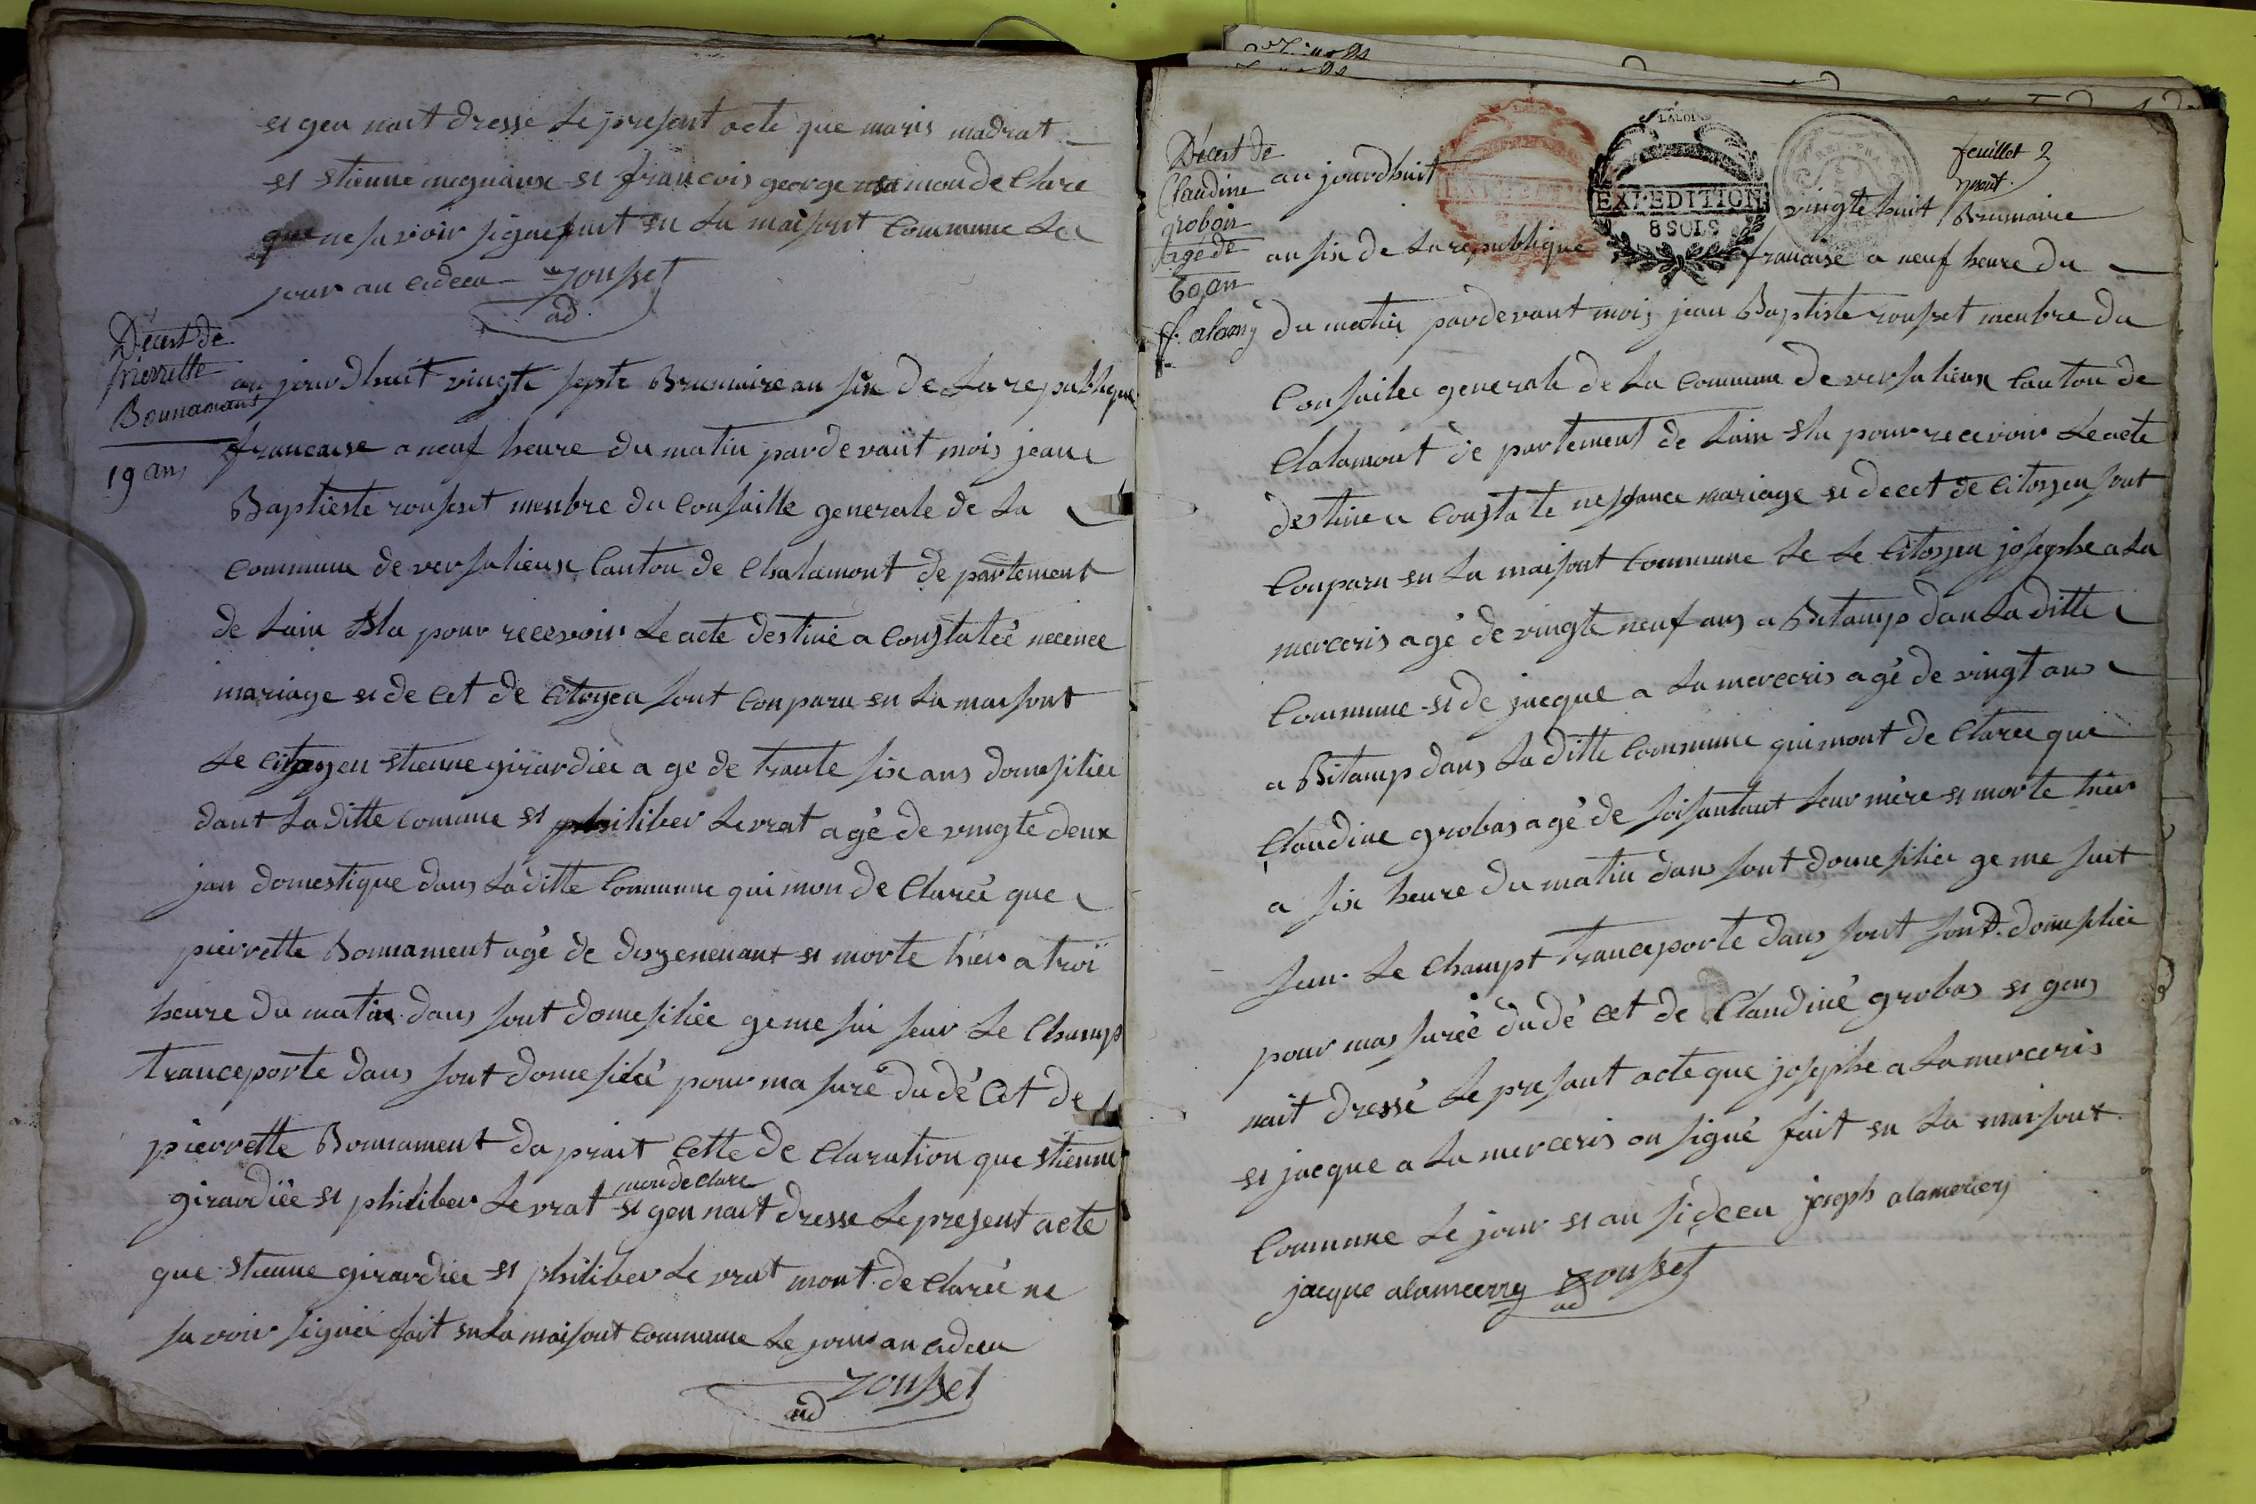 si gen nait dresse le present acte que maris madrat
si stienne mognieux si francois george mon de Clare
que ne savoir signe fait en la maisont Commune le
jour an cideeu rousset
ad
Décest de
pierrette
Bonnamant
19 ans
au jourdhuit vingte septe Brumaire an six de la republique
francaise a neuf heure du matin pardevant mois jean
Baptieste rousset menbre du Consaille generale de la
Commune de versalieux Canton de Chalamont de partement
de lain Elu pour recevoir le acte destiné a Constateé necence
mariage si de cet de Citoyen sont Conparu en la maisont
le citoyen stienne girardiee a ge de trante six ans domesiliee
dant la ditte Comune si philiber levrat agé de vingte deux
jan domestique dans la ditte Commune qui mon de Clareé que
pierrette Bonnament agé de dizenenant si morte hier a troi
heure du matin dans sont domesiliée ge me sui seur le Champ
tranceporte dans sont domesilié pour ma suré du dé Cet de
pierrette Bonnament da prait Cette de Claration que stienne
mon de Clare
girardiée si philiber levrat si gen nait dresse le present acte
que stienne girardiee si philiber le vrat mont de Clareé ne
savoir signéé fait en la maisont Commune le jour an cideeu
rousset
ad
feuillet 2
Décest de
Claudine
groboz
agé de
60 an
f. alamy
LALOI
EXPEDITION
8 SOLS
au jourdhuit vingte huit Brumaire
an six de la republique francaise a neuf heure du
du matin pardevant mois jean Baptiste rousset menbre du
Consailee generale de la Commune de versalieux Canton de
Chalamont de partement de lain Elu pour recevoir le acte
destine a Constate nessance mariage si decet de Citoyen sont
Conparu en la maisont Commune le le Citoyen josephe a la
merceris agé de vingte neuf ans a Bitamp dan la ditte
Commune si de jacque a la merceris agé de vingt ans
a Bitamp dans la ditte Commune qui mont de Claree que
Claudine grobas agé de soisantant leur mère si morte hier
a six heure du matin dans sont domesiliee ge me suit
seur le Champt tranceporte dans sont sont domesiliee
pour mas surée du dé cet de Claudiné grobas si gens
nait dressé le presant acte que josephe a la merceris
si jacque a la merceris on signé fait en la maisont
Commune le jour si an sideeu joseph alamercery
jacque alamcerry rousset
ad